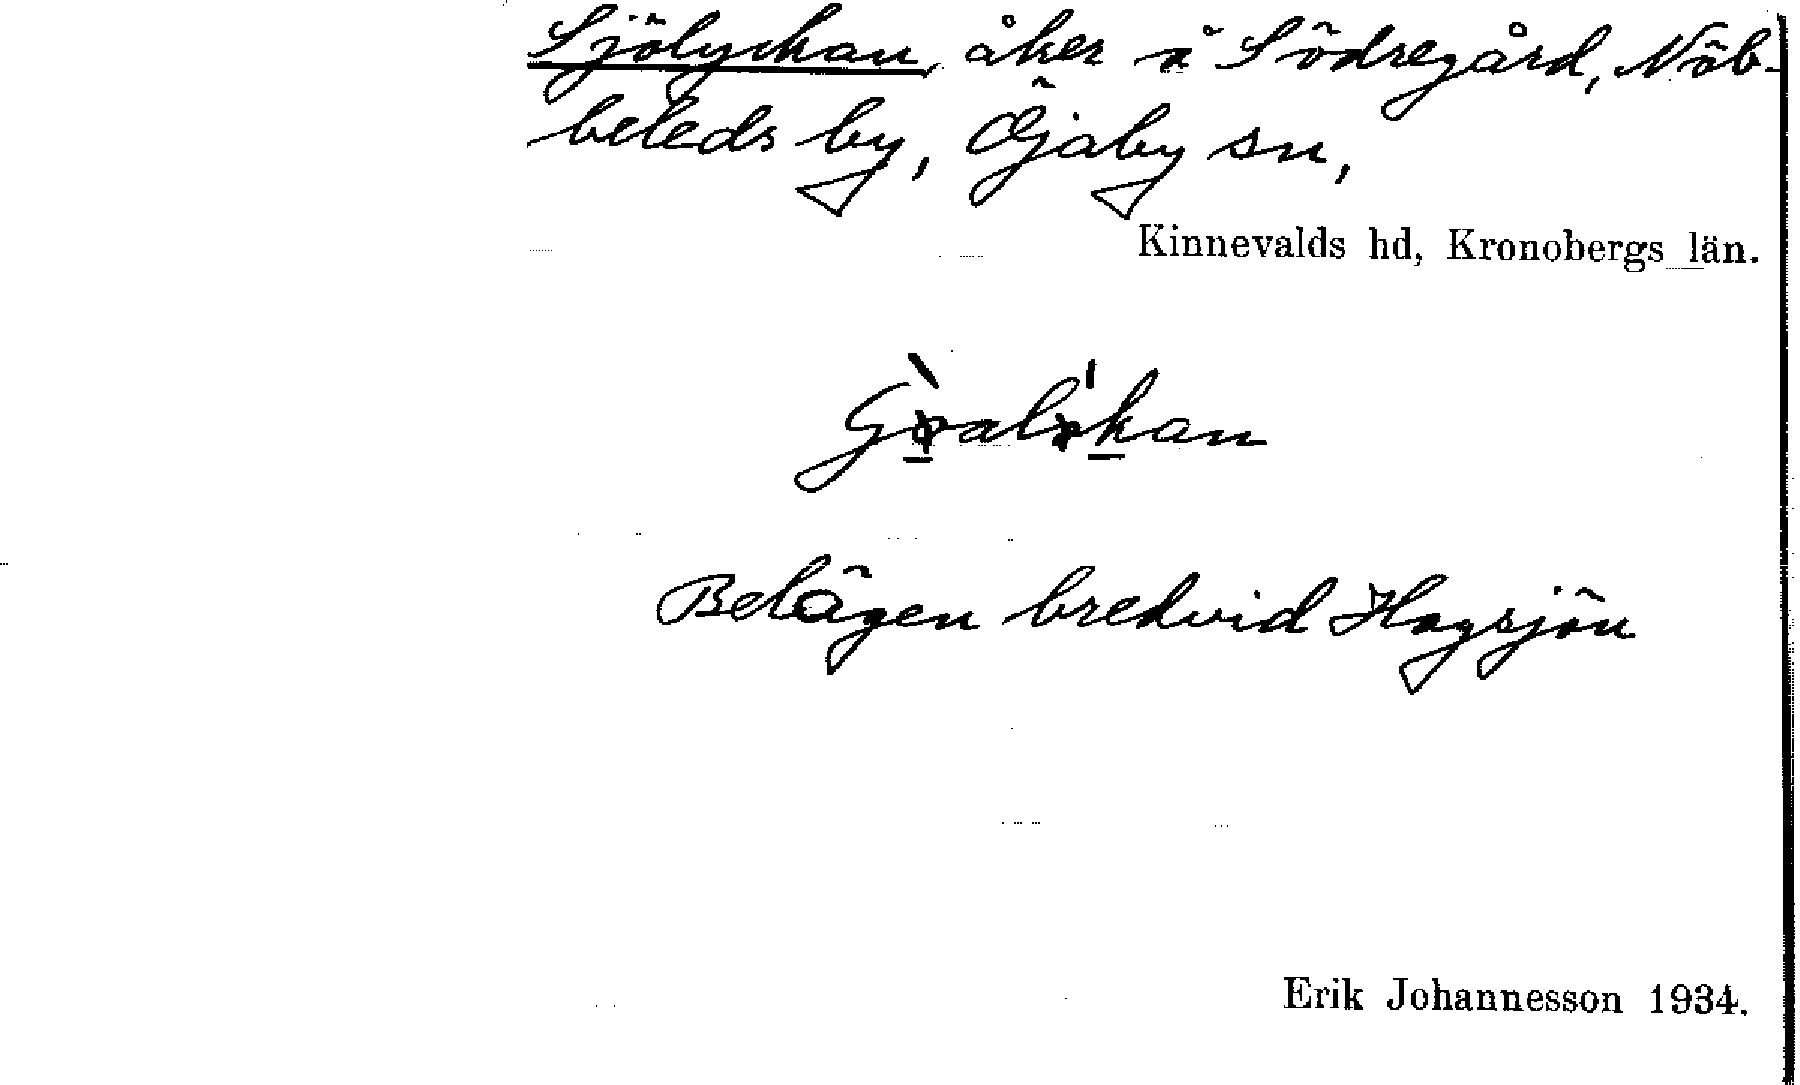 Sjölyckan, åker å Södregård, Nöb-
beleds by, Öjaby sn,
Kinnevalds hd, Kronobergs län.
Belägen bredvid Hagsjön
Erik Johannesson 1934.